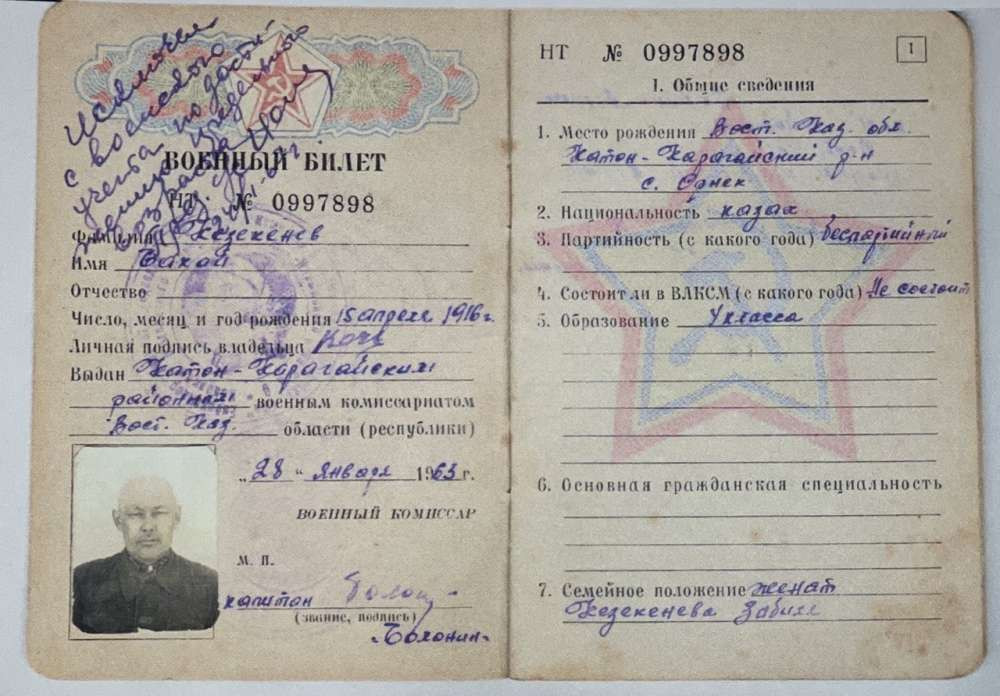 Исключен
с воинского
учета по дости-
жению предельного
возраста
ВОЕННЫЙ БИЛЕТ
НТ № 0997898
Фамилия Кезекенев
Имя
Отчество
Число, месяц и год рождения 15 апреля 1916 г.
Личная подпись владельца
Выдан Катон-Карагайским
районным военным комиссариатом
Вост. Каз. области (республики)
„28“ января 1963 г.
ВОЕННЫЙ КОМИССАР
М. П.
капитан
(звание, подпись)
НТ № 0997898
1
I. Общие сведения
1. Место рождения Вост. Каз. обл.
Катон-Карагайский р-н
с.
2. Национальность казах
3. Партийность (с какого года) беспартийный
4. Состоит ли в ВЛКСМ (с какого года) Не состоит
5. Образование 4 класса
6. Основная гражданская специальность
7. Семейное положение женат
Кезекенева